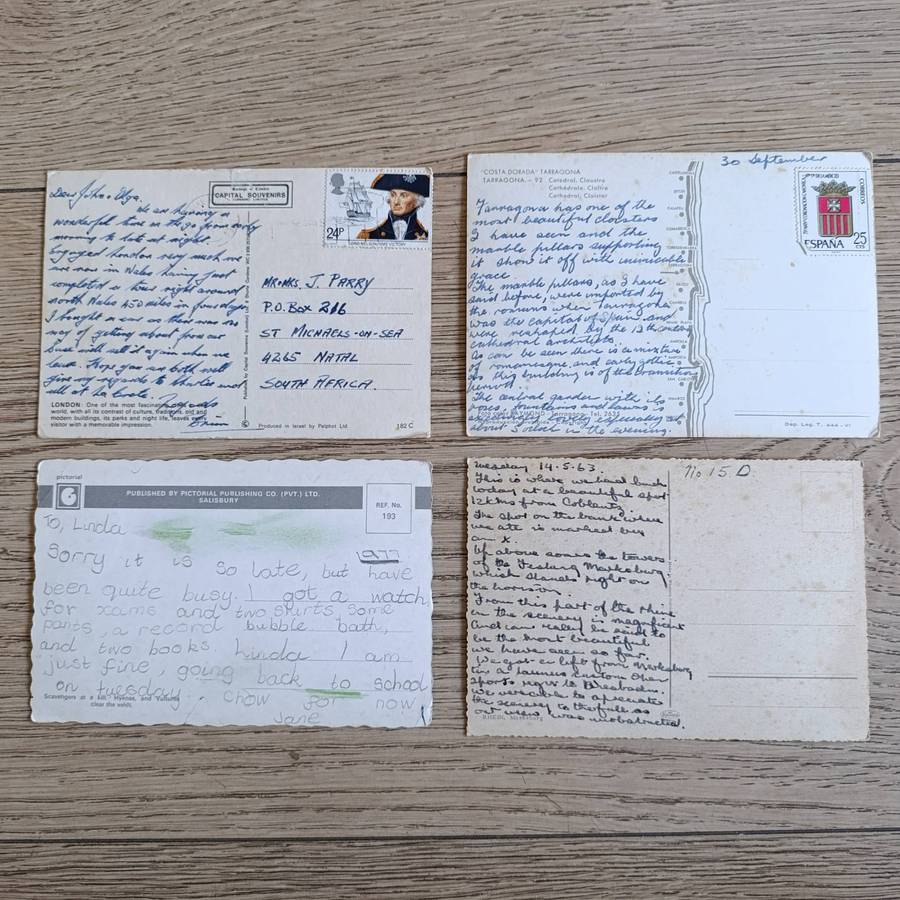 Dear John & Olga,
We are having a
wonderful time on the go from early
morning to late at night
Enjoyed London very much we
are now in Wales having just
completed a tour right around
north Wales 450 miles in four days
I bought a car as there was no
way of getting about from our
base will sell it again when we
leave. Hope you are both well
give my regards to Charles and
all at the
Regards
Brian
LONDON: One of the most fascinating
world, with all its contrast of culture, traditions, old and
modern buildings, its parks and night life, leaves every
visitor with a memorable impression.
CAPITAL SOUVENIRS
24P
LORD NELSON/HMS VICTORY
MR & MRS. J. PARRY
P.O. Box 216
ST MICHAELS-ON-SEA
4265 NATAL
SOUTH AFRICA.
Produced in Israel by Palphot Ltd.
182 C
"COSTA DORADA" TARRAGONA
TARRAGONA.- 92 Catedral, Claustro
Cathédrale, Cloître
Cathedral, Cloister
30 September
CORREOS
ESPAÑA
25
CTS
Tarragona has one of the
most beautiful cloisters
I have seen and the
marble pillars supporting
it show it off with
grace.
The marble pillars, as I have
said before, were imported by
the romans when Tarragona
was the capital of Spain and
were reshaped by the 12th century
cathedral architects.
As can be seen there is a mixture
of romanesque and early gothic
as this building is of the transition
period.
The central garden with its
roses, fountains and lawns is
especially
about 5 oclock in the evening.
Dep. Leg. T.
pictorial
PUBLISHED BY PICTORIAL PUBLISHING CO. (PVT.) LTD.
SALISBURY
REF. No.
193
1977
To, Linda
Sorry it is so late, but have
been quite busy. I got a watch
for xams and two skirts some
pants, a record bubble bath,
and two books Linda I am
just fine, going back to school
on tuesday. Chow for now
Jane
Scavengers at a kill. Hyenas, and Vultures
clear the veldt.
Tuesday 14.5.63.
No 15 D
This is where we had lunch
today at a beautiful spot
12 kms from Coblentz.
The spot on the bank where
we ate is marked by
an X.
Up above soars the towers
of the Festung Marksburg
which stands right on
the horizon.
From this part of the Rhine
on the scenery is magnificent
and can really be said to
be the most beautiful
we have seen so far.
We got a lift from Marksburg
in a
sports
we were able to appreciate
the scenery to the full as
our view was unobstructed.
RHEIN, Marksburg